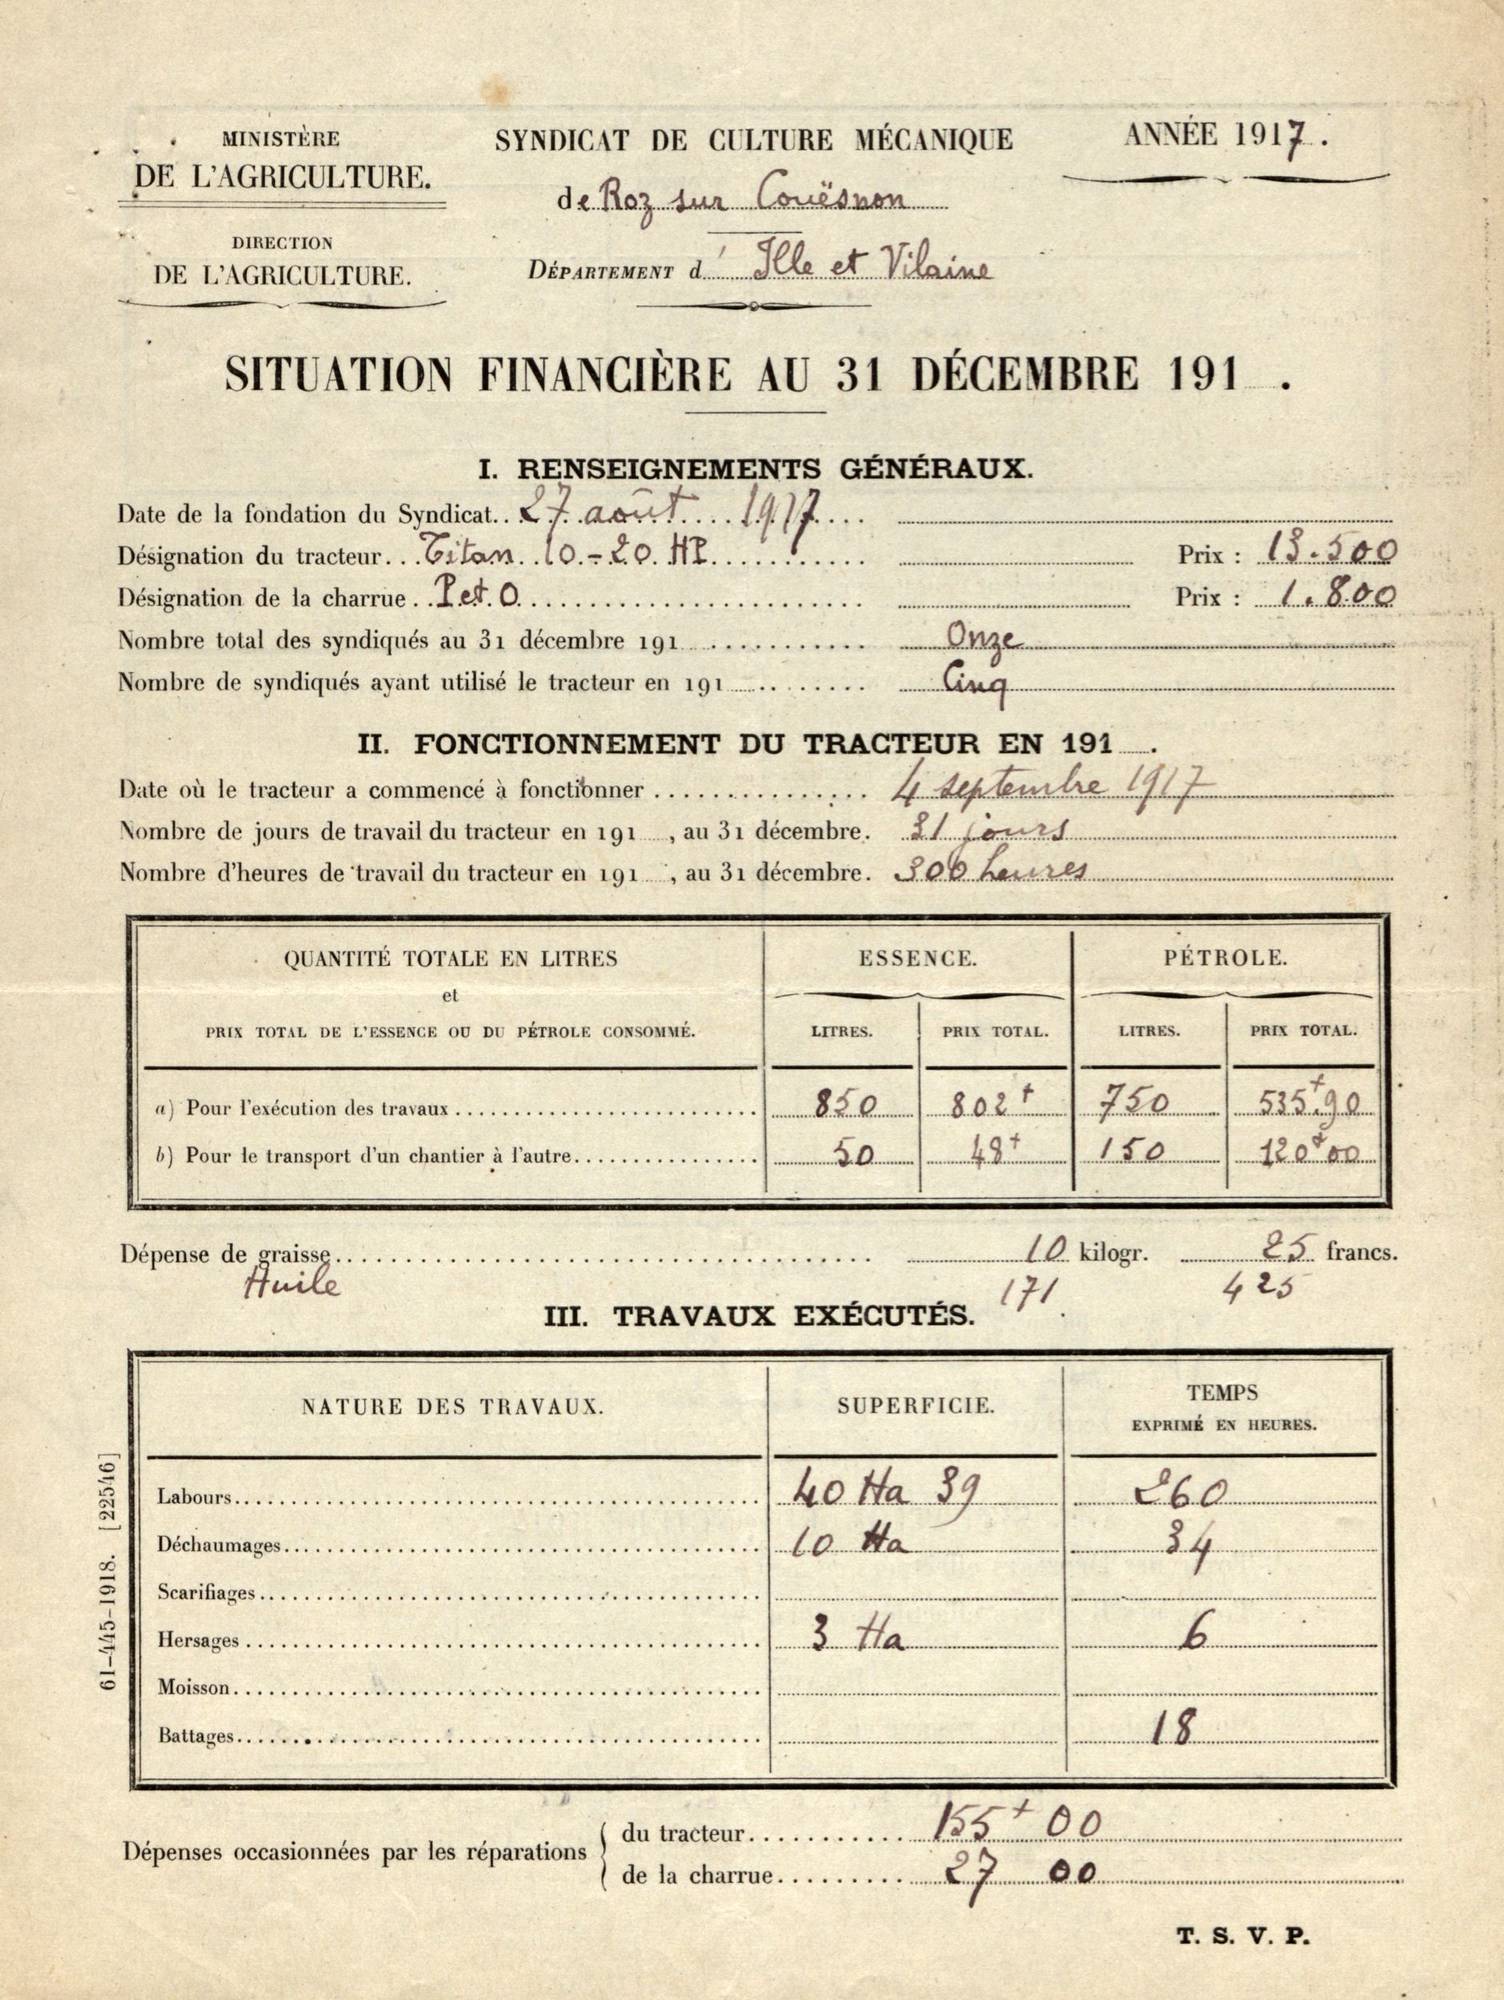 MINISTÈRE
DE L'AGRICULTURE.
DIRECTION
DE L'AGRICULTURE.
SYNDICAT DE CULTURE MÉCANIQUE
de Roz sur Couësnon
DÉPARTEMENT d' Ille et Vilaine
ANNÉE 1917.
SITUATION FINANCIÈRE AU 31 DÉCEMBRE 191 .
I. RENSEIGNEMENTS GÉNÉRAUX.
Date de la fondation du Syndicat.. 27 août 1917
Désignation du tracteur... Titan 10-20 HP Prix : 13.500
Désignation de la charrue.. P et O Prix : 1.800
Nombre total des syndiqués au 31 décembre 191 Onze
Nombre de syndiqués ayant utilisé le tracteur en 191 Cinq
II. FONCTIONNEMENT DU TRACTEUR EN 191 .
Date où le tracteur a commencé à fonctionner 4 septembre 1917
Nombre de jours de travail du tracteur en 191 , au 31 décembre. 31 jours
Nombre d'heures de travail du tracteur en 191 , au 31 décembre. 300 heures
QUANTITÉ TOTALE EN LITRES
et
PRIX TOTAL DE L'ESSENCE OU DU PÉTROLE CONSOMMÉ.
ESSENCE. PÉTROLE.
LITRES. PRIX TOTAL. LITRES. PRIX TOTAL.
a) Pour l'exécution des travaux 850 802+ 750 535+90
b) Pour le transport d'un chantier à l'autre 50 48+ 150 120+00
Dépense de graisse 10 kilogr. 25 francs.
Huile 171 425
III. TRAVAUX EXÉCUTÉS.
NATURE DES TRAVAUX. SUPERFICIE. TEMPS
EXPRIMÉ EN HEURES.
Labours 40 Ha 39 260
Déchaumages 10 Ha 34
Scarifiages
Hersages 3 Ha 6
Moisson
Battages 18
Dépenses occasionnées par les réparations
du tracteur 155+ 00
de la charrue 27 00
T. S. V. P.
61-445-1918. [22546]